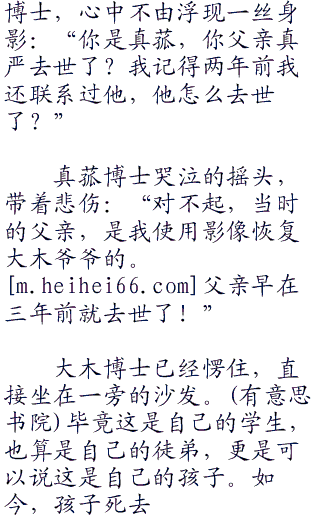 博士，心中不由浮现一丝身
影：“你是真菰，你父亲真
严去世了？我记得两年前我
还联系过他，他怎么去世
了？”
真菰博士哭泣的摇头，
带着悲伤：“对不起，当时
的父亲，是我使用影像恢复
大木爷爷的。
[m.heihei66.com]父亲早在
三年前就去世了！”
大木博士已经愣住，直
接坐在一旁的沙发。(有意思
书院)毕竟这是自己的学生，
也算是自己的徒弟，更是可
以说这是自己的孩子。如
今，孩子死去